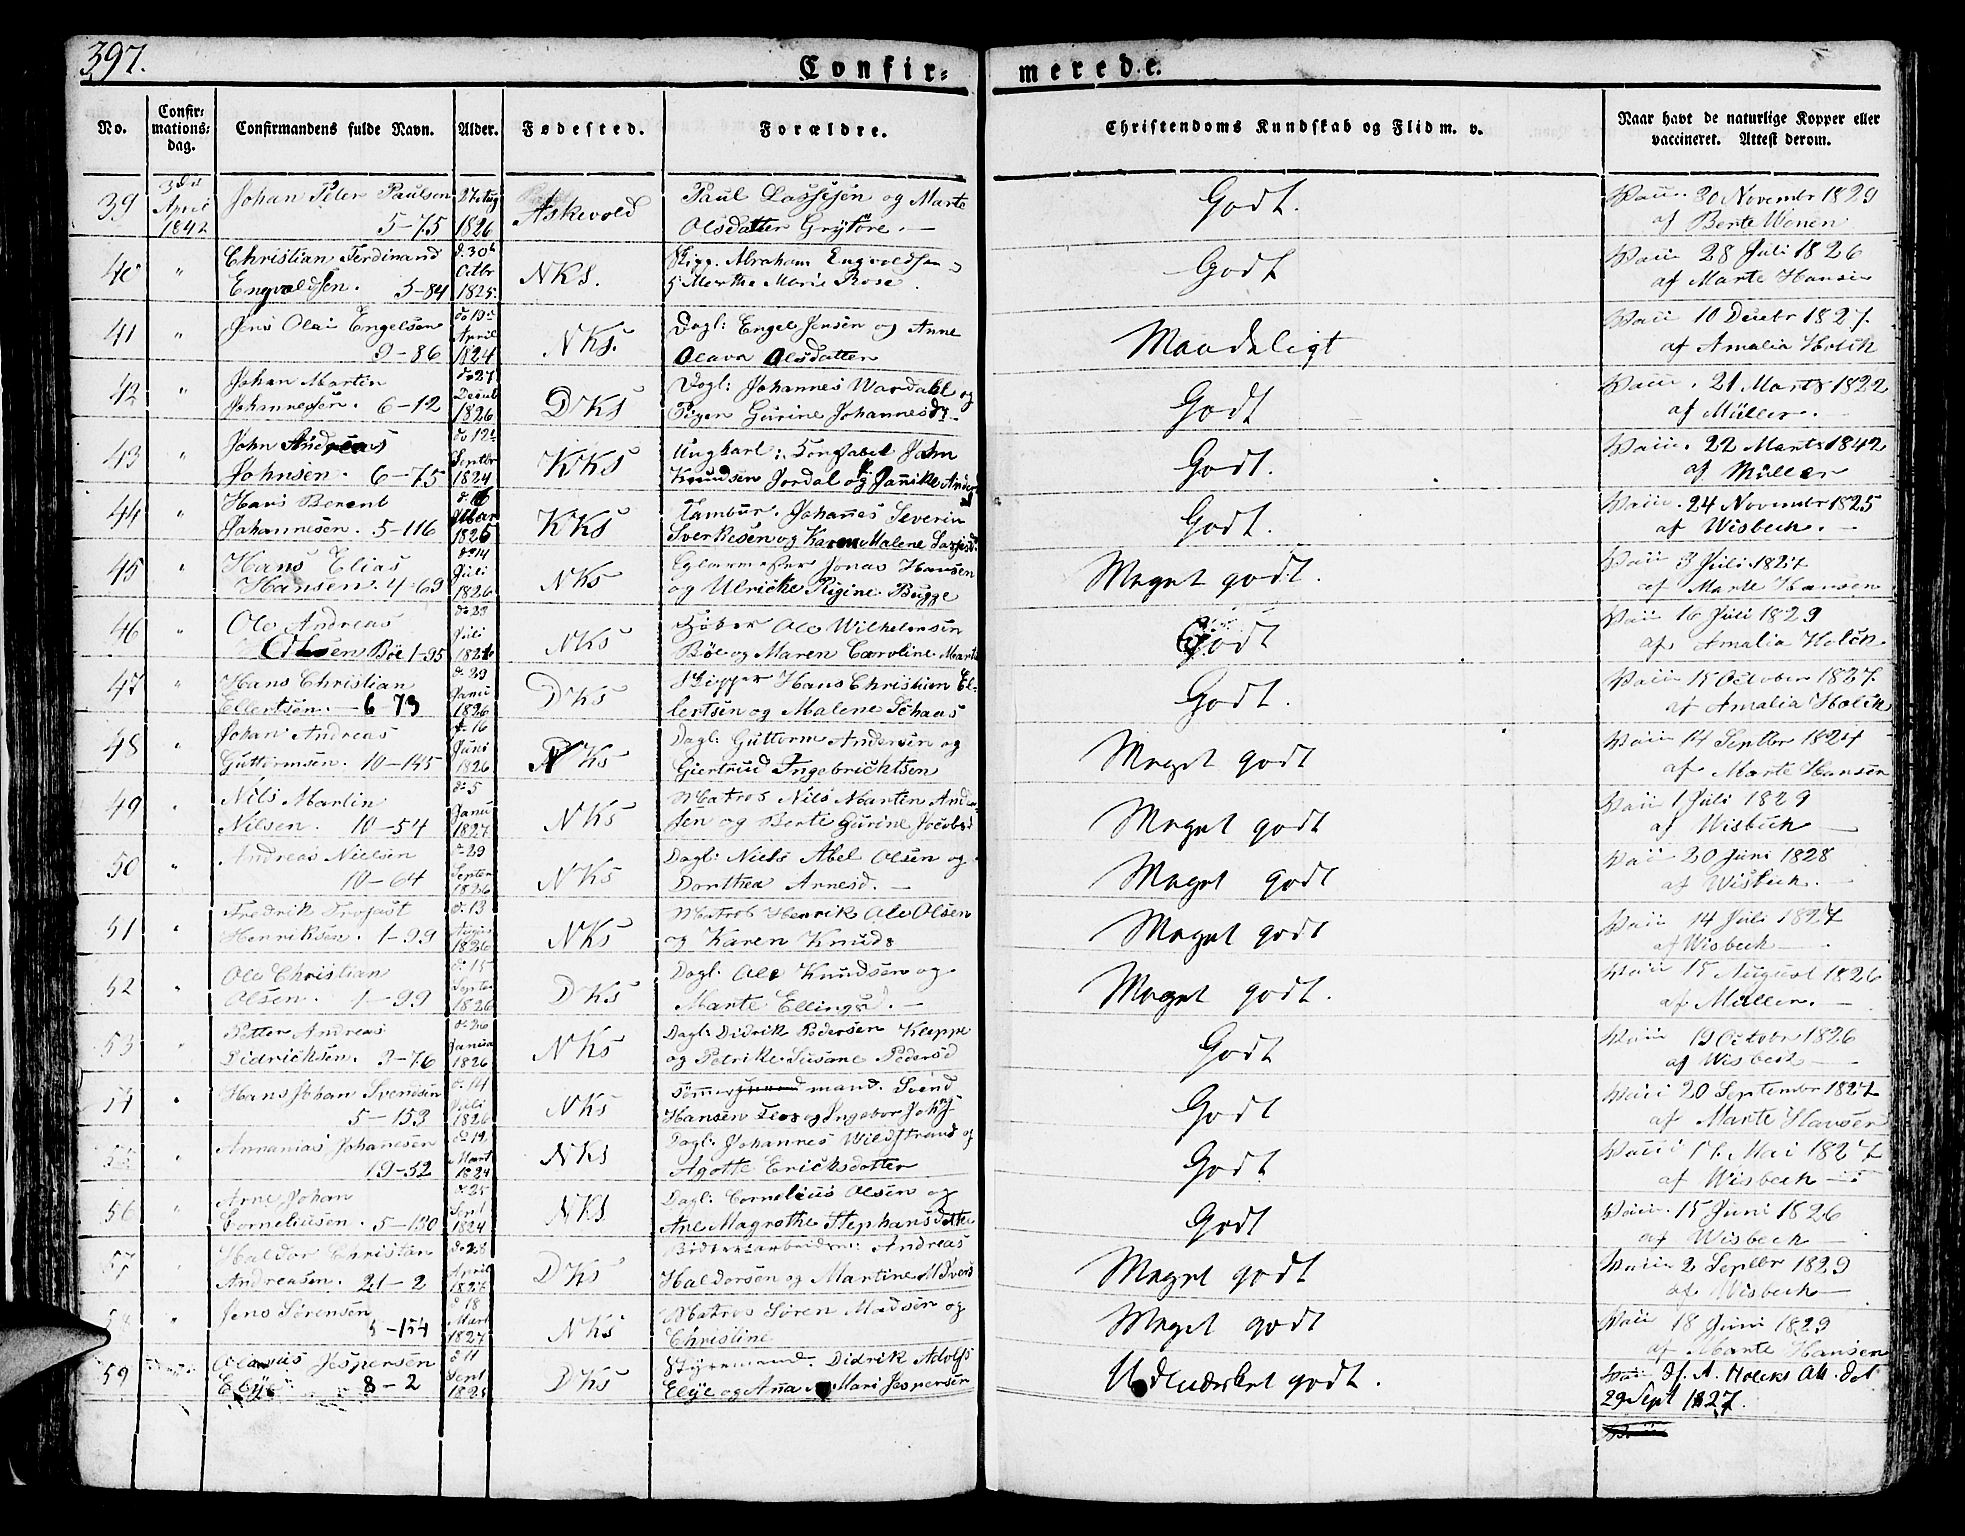 397.
Confir= merede.
No.
Confir=
mations=
dag.
Confirmandens fulde Navn.
Alder.
Fødested.
Forældre.
Christendoms Kundskab og Flid m. v.
Naar havt de naturlige Kopper eller
vaccineret. Attest derom.
39 3die April 1842 Johan Peter Paulsen 5-75 1826 Askevold Paul Lassesen og Marte
Olsdatter Grytøre. Godt. 30 Novembr 1829
af Berte Wonen
40 " Christian Ferdinand
Engvoldsen. 5-84 d. 30 Octbr 1825. NKS. Abraham Engvoldsen
Merthe Marie Rose Godt 28 Juli 1826
af Marte Hansen
41 " Jens Olai Engelsen
9-86 April 1824 NKS. Dagl: Engel Jensen og Anne
Olava Olsdatter Maadeligt 10 Decbr 1827.
af Amalia Holck
42 " Johan Martin
Johannesen. 6-12 do 27 Decbr 1826 DKS Dagl: Johannes Wardahl og
Pigen Gurine Johannesd. Godt 21 Marts 1822
af Müller.
43 " John Andreas
Johnsen. 6-75 do 12 Septbr 1824 KKS Ungkarl: John
Knudsen Jordal og Janike Anders Godt. 22 Marts 1842
af Müller
44 " Hans Berent
Johannesen. 5-116 Mar 1826 KKS Tambur. Johannes Severin
Sverkesen og Karen Malene Godt. 24 Novembr 1825
af Wisbech.
45 " Hans Elias
Hansen. 4-69 do 14 Juli 1826 NKS Glarmester Jonas Hansen
og Ulricke Rigine Bugge Meget godt. 3 Juli 1827
af Marte Hansen
46 " Ole Andreas
Olsen Bøe 1-95 Juli 1826 NKS Ole Wilhelmsen
Bøe og Maren Caroline Godt 16 Juli 1829
af Amalia Holck
47 " Hans Christian
Ellertsen. 6 73 Janu 1826 DKS Skipper Hans Christian El-
lertsen og Malene Schaas Godt. 15 October 1827.
af Amalia Holck
48 " Johan Andreas
Guttormsen. 10-145 16 Juni 1826 NKS Dagl: Guttorm Andersen og
Giertrud Ingebrichtsen Meget godt 14 Septbr 1827
af Marte Hansen
49 " Nils Martin
Nilsen. 10-54 5 Janu 1827. NKS Matros Nils Martin Ander-
sen og Berte Gurine Jacobsd Meget godt 1 Juli 1829
af Wisbech
50 " Andreas Nielsen
10-64 29 Septbr 1826 NKS Dagl: Niels Abel Olsen og
Dorthea Arnesd. Meget godt 20 Juni 1828
af Wisbech.
51 " Fredrik Trofast
Henriksen. 1-99 13 1826 NKS Matros Henrik Ole Olsen
og Karen Knuds Meget godt 14 Juli 1827
af Wisbech
52 " Ole Christian
Olsen. 1-99 15 Septbr 1826 DKS Dagl: Ole Knudsen og
Marte Ellingsd. Meget godt. 15 August 1826
af Müller.
53 " Petter Andreas
Didricksen. 3-76 26 Janua 1826 NKS Dagl: Didrik Pedersen Kleppe
og Petrike Susane Pedersd Godt 19 Octobr 1826
af Wisbech
54 " Hans Johan Svendsen
5-153 14 Juli 1826 NKS Tømmermand. Svend
Hansen og Ingebor Godt 20 Septembr 1827
af Marte Hansen
55 " Annanias Johanesen
19-52 Mart 1824 NKS Dagl: Johannes Wildstrand og
Agotte Ericksdatter Godt Mai 1827
af Wisbech
56 " Arne Johan
Corneliusen. 5-130 25 Sept 1824 NKS Dagl: Cornelius Olsen og
Ane Magrethe Stephansdatter Godt 15 Juni 1826
af Wisbech
57 " Haldor Christian
Andreasen. 21-2 28 April 1827 DKS Andreas
Haldorsen og Martine M Meget godt 2 Septbr 1829
af Wisbech
58 " Jens Sørensen
5-154 18 Mart 1827 NKS Matros Søren Madsen og
Christine Meget godt 18 Juni 1829
af Marte Hansen
59 Olaus Jespersen
8-2 11 Sept 1825 DKS Styrmand. Didrik Adolfs
og Anna Mari Jespersen Udmærket godt. A. Holcks Att. dat
29 Sept 1827.